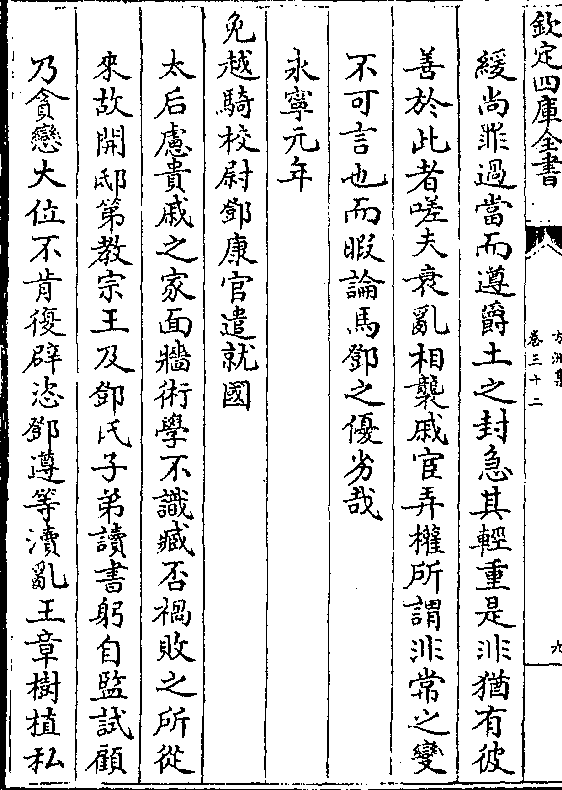 欽定四庫全書
方洲集
卷三十二
九
緩尚非過當而遵爵土之封急其輕重是非猶有彼
善於此者嗟夫衰亂相襲戚宦弄權所謂非常之變
不可言也而暇論馬鄧之優劣哉
永寧元年
免越騎校尉鄧康官遣就國
太后慮貴戚之家面牆術學不識臧否禍敗之所從
來故開邸第教宗王及鄧氏子弟讀書躬自監試顧
乃貪戀大位不肯復辟恣鄧遵等瀆亂王章樹植私